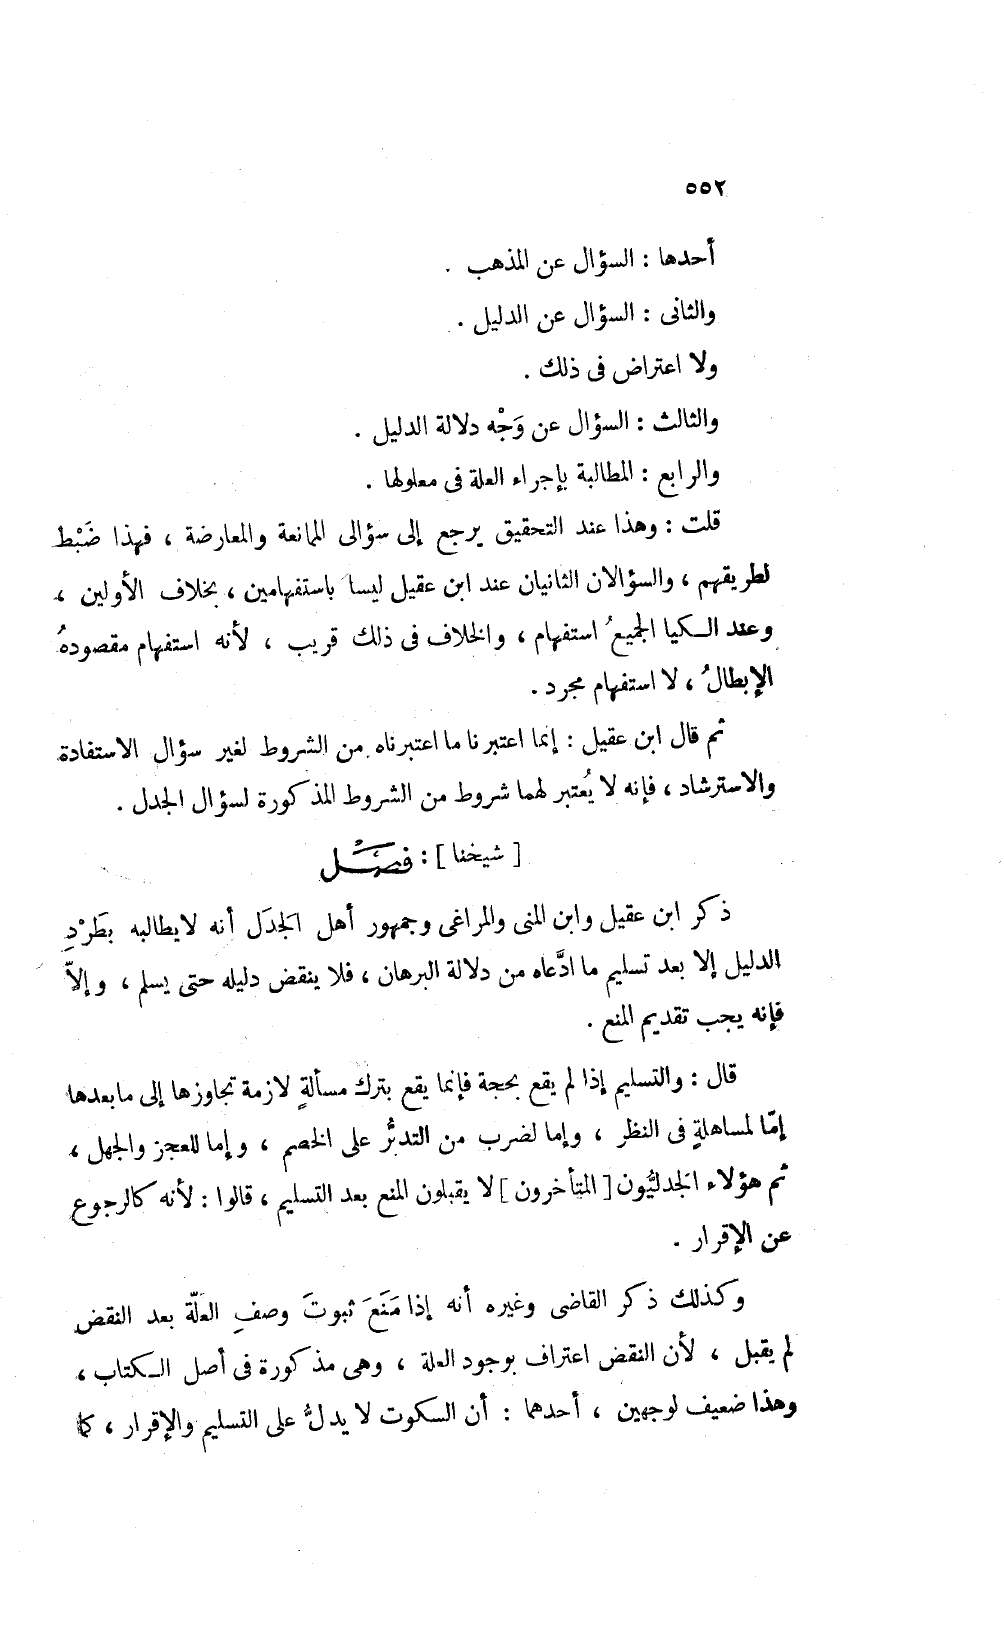 ٥٥٢
أحدها : السؤال عن المذهب .
والثانى : السؤال عن الدليل .
ولا اعتراض فى ذلك .
والثالث : السؤال عن وَجْه دلالة الدليل .
والرابع : المطالبة بإجراء العلة فى معلولها .
قلت : وهذا عند التحقيق يرجع إلى سؤالى الممانعة والمعارضة ، فهذا ضَبْط
لطريقهم ، والسؤالان الثانيان عند ابن عقيل ليسا باستفهامين ، بخلاف الأولين ،
وعند الكيا الجميعُ استفهام ، والخلاف فى ذلك قريب ، لأنه استفهام مقصودهُ
الإبطالُ ، لا استفهام مجرد .
ثم قال ابن عقيل : إنما اعتبرنا ما اعتبرناه من الشروط لغير سؤال الاستفادة
والاسترشاد ، فإنه لا يُعتبر لهما شروط من الشروط المذكورة لسؤال الجدل .
[ شيخنا ] : فصْل
ذكر ابن عقيل وابن المنى والمراغى وجمهور أهل الجَدَل أنه لا يطالبه بطَرْدِ
الدليل إلا بعد تسليم ما ادَّعاه من دلالة البرهان ، فلا ينقض دليله حتى يسلم ، وإلاَّ
فإنه يجب تقديم المنع .
قال : والتسليم إذا لم يقع بحجة فإنما يقع بترك مسألةٍ لازمة تجاوزها إلى ما بعدها
إمَّا لمساهلةٍ فى النظر ، وإما لضرب من التدبُّر على الخصم ، وإما للعجز والجهل ،
ثم هؤلاء الجَدليُّون [ المتأخرون ] لا يقبلون المنع بعد التسليم ، قالوا : لأنه كالرجوع
عن الإقرار .
وكذلك ذكر القاضى وغيره أنه إذا مَنَعَ ثبوتَ وصفِ العلّة بعد النقض
لم يقبل ، لأن النقض اعتراف بوجود العلة ، وهى مذكورة فى أصل الكتاب ،
وهذا ضعيف لوجهين ، أحدهما : أن السكوت لا يدلُّ على التسليم والإقرار ، كما